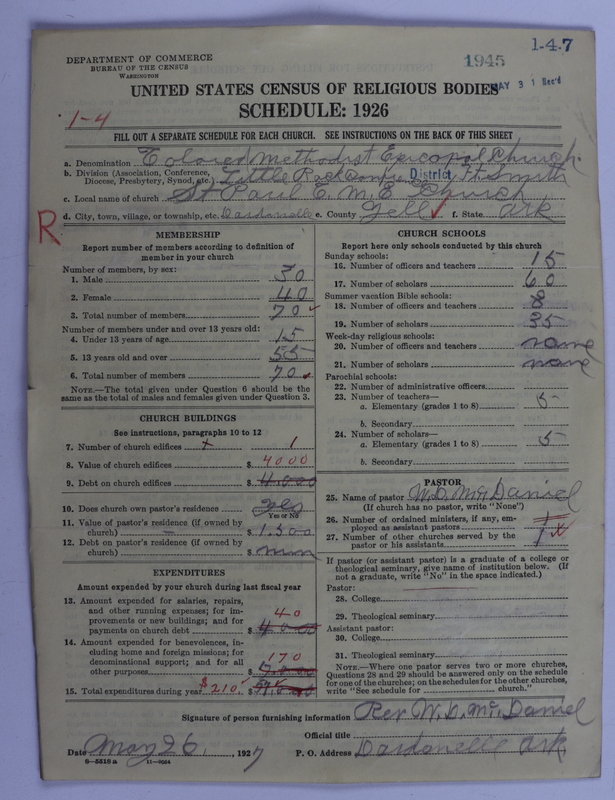 1-4-7
DEPARTMENT OF COMMERCE
BUREAU OF THE CENSUS
WASHINGTON
1945
MAY 31 Rec'd
UNITED STATES CENSUS OF RELIGIOUS BODIES
SCHEDULE: 1926
1-4
FILL OUT A SEPARATE SCHEDULE FOR EACH CHURCH. SEE INSTRUCTIONS ON THE BACK OF THIS SHEET
a. Denomination Colored Methodist Episcopal Church.
b. Division (Association, Conference, Diocese, Presbytery, Synod, etc.) Little Rock Confre District Ft. Smith
c. Local name of church St Paul C. M. E Church
R d. City, town, village, or township, etc. Dardanelle e. County Yell f. State Ark
MEMBERSHIP
Report number of members according to definition of
member in your church
Number of members, by sex:
1. Male 30
2. Female 40
3. Total number of members 70
Number of members under and over 13 years old:
4. Under 13 years of age 15
5. 13 years old and over 55
6. Total number of members 70
NOTE.—The total given under Question 6 should be the
same as the total of males and females given under Question 3.
CHURCH BUILDINGS
See instructions, paragraphs 10 to 12
7. Number of church edifices 1
8. Value of church edifices $ 4000
9. Debt on church edifices $ 4.000
10. Does church own pastor's residence yes
Yes or No
11. Value of pastor's residence (if owned by
church) $ 1.500
12. Debt on pastor's residence (if owned by
church) $
EXPENDITURES
Amount expended by your church during last fiscal year
13. Amount expended for salaries, repairs,
and other running expenses; for im-
provements or new buildings; and for 40
payments on church debt $
14. Amount expended for benevolences, in-
cluding home and foreign missions; for
denominational support; and for all 170
other purposes $
15. Total expenditures during year $210. $
CHURCH SCHOOLS
Report here only schools conducted by this church
Sunday schools:
16. Number of officers and teachers 15
17. Number of scholars 60
Summer vacation Bible schools:
18. Number of officers and teachers 8
19. Number of scholars 35
Week-day religious schools:
20. Number of officers and teachers none
21. Number of scholars none
Parochial schools:
22. Number of administrative officers
23. Number of teachers—
a. Elementary (grades 1 to 8) 5
b. Secondary
24. Number of scholars—
a. Elementary (grades 1 to 8) 5
b. Secondary
PASTOR
25. Name of pastor W. D. McDaniel
(If church has no pastor, write "None")
26. Number of ordained ministers, if any, em-
ployed as assistant pastors
27. Number of other churches served by the
pastor or his assistants 1
If pastor (or assistant pastor) is a graduate of a college or
theological seminary, give name of institution below. (If
not a graduate, write "No" in the space indicated.)
Pastor:
28. College
29. Theological seminary
Assistant pastor:
30. College
31. Theological seminary
NOTE.—Where one pastor serves two or more churches,
Questions 28 and 29 should be answered only on the schedule
for one of the churches; on the schedules for the other churches,
write "See schedule for church."
Signature of person furnishing information Rev W. D. McDaniel
Official title
Date May 26, 1927 P. O. Address Dardanelle Ark.